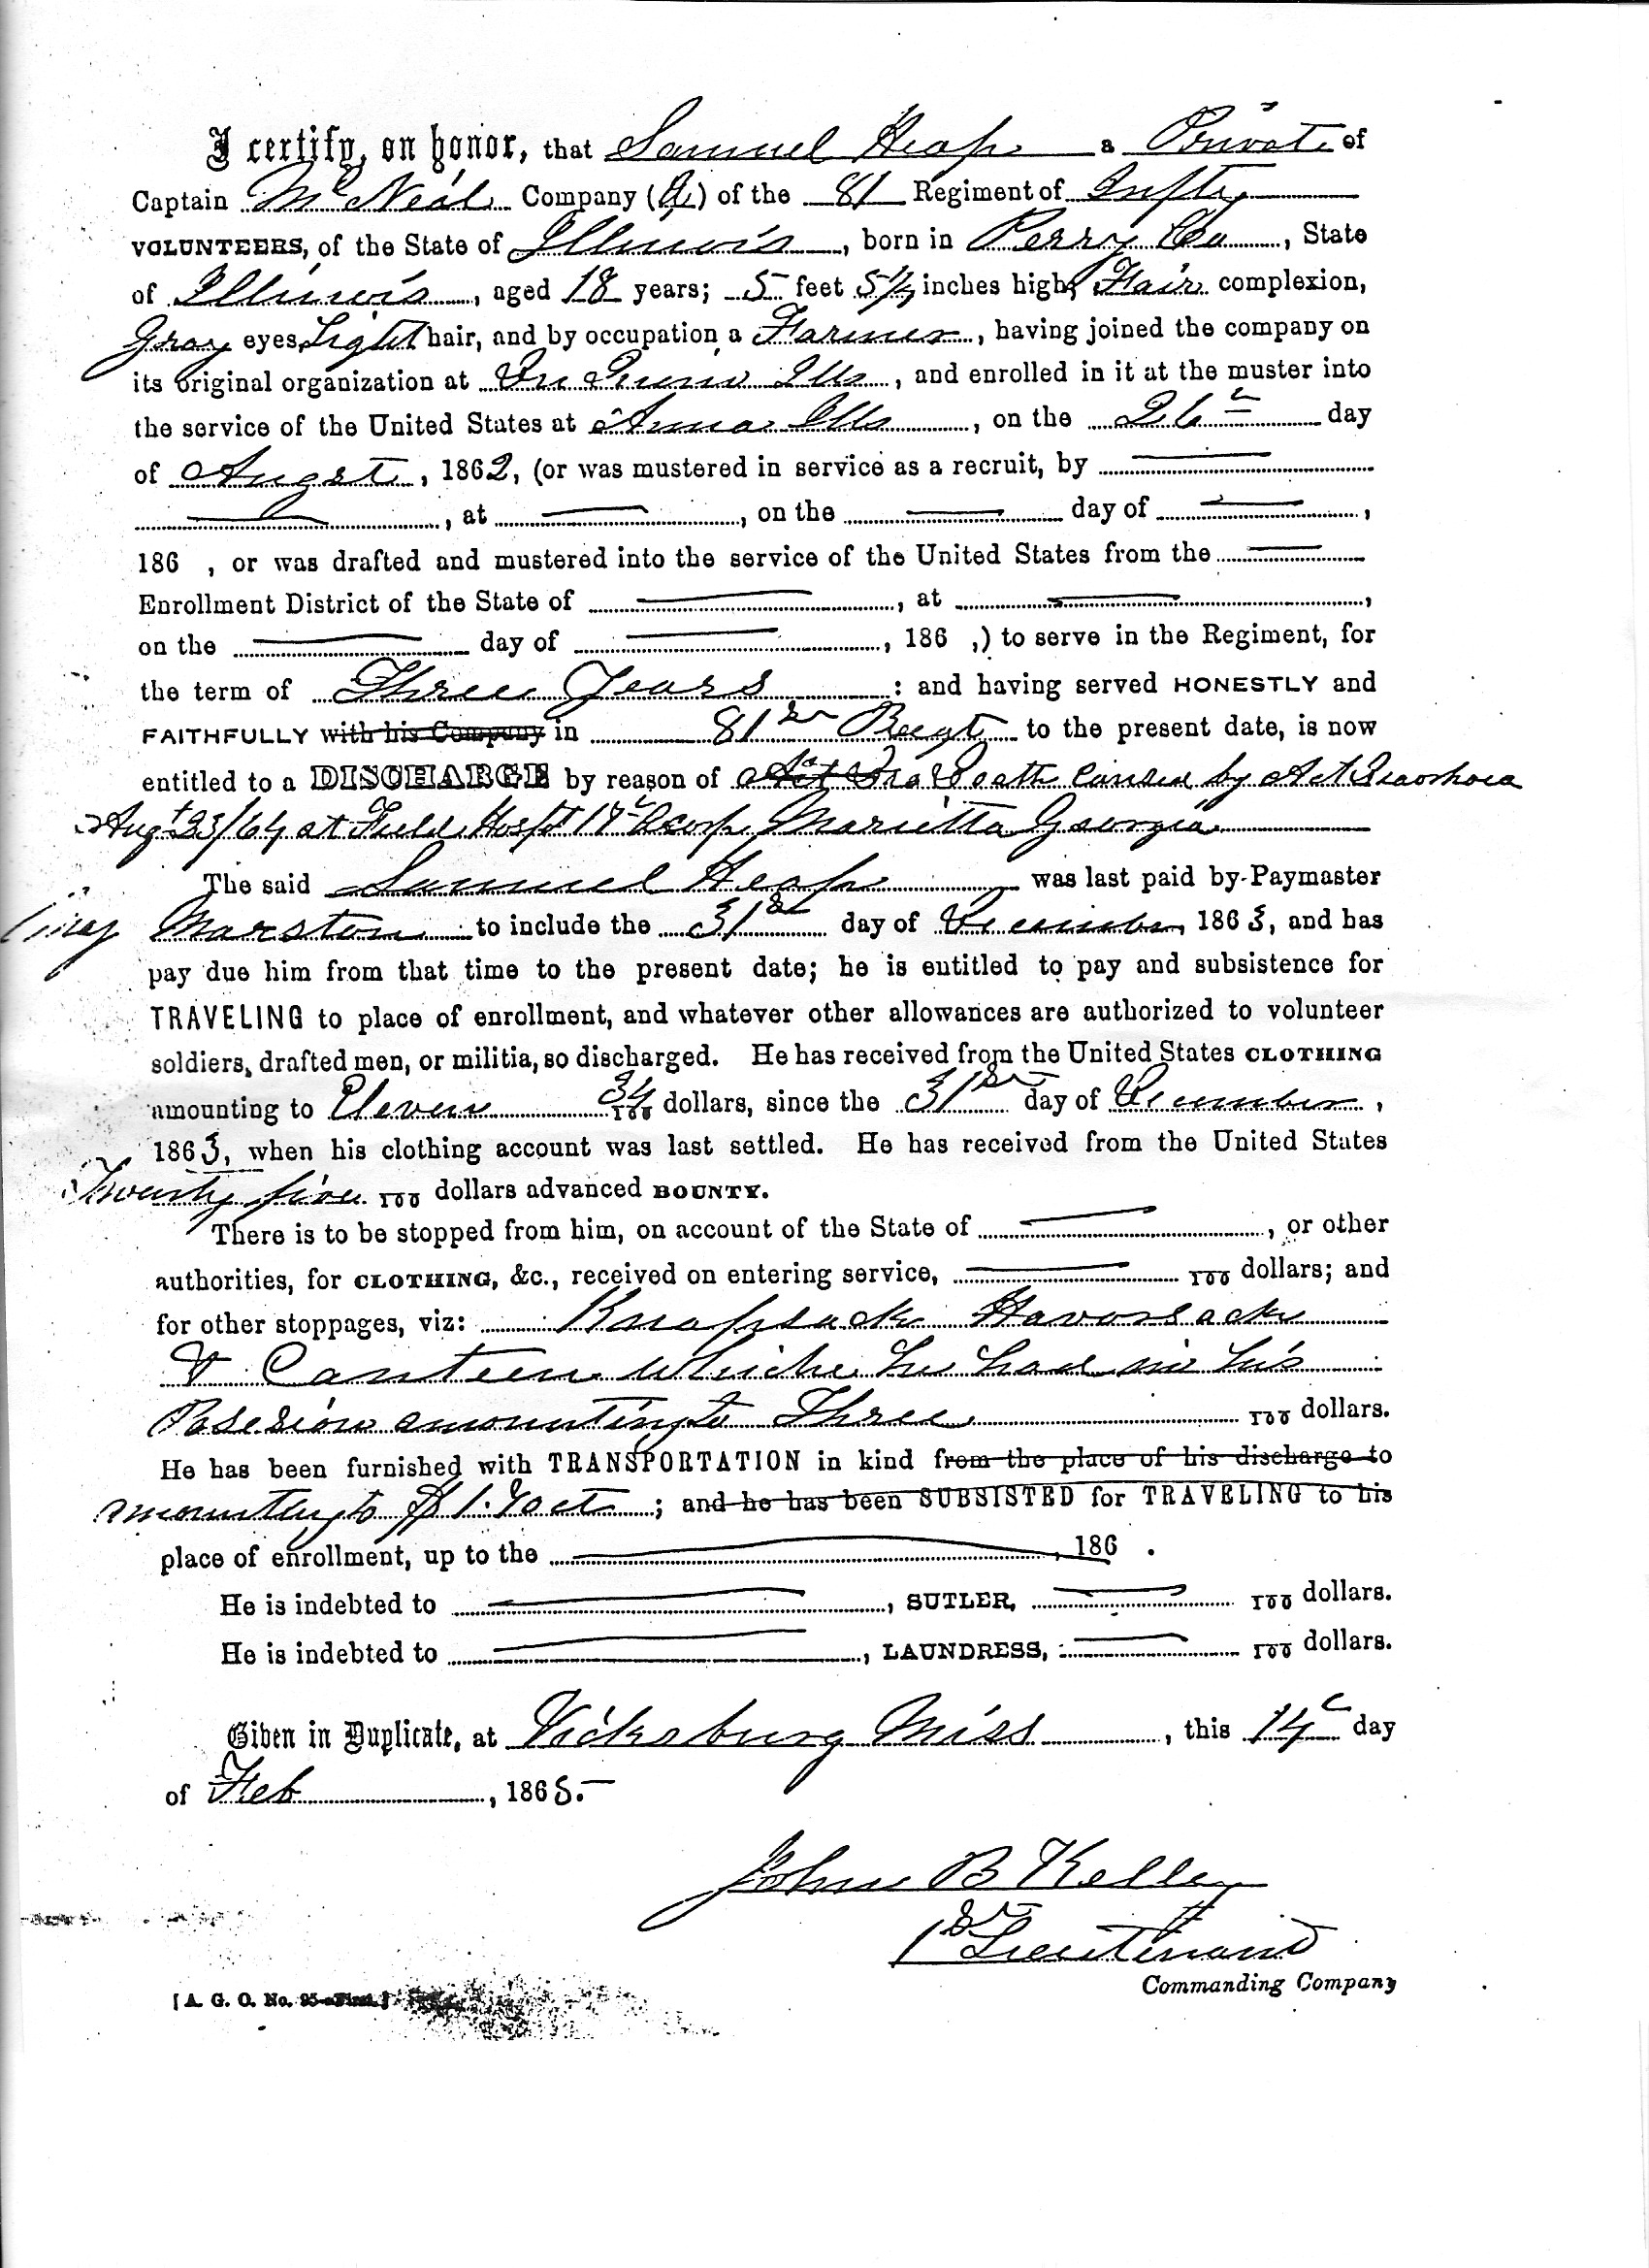 I certify, on honor, that Samuel Heape a Private of
Captain McNeal Company (A) of the 81 Regiment of Infty
VOLUNTEERS, of the State of Illinois, born in Perry Co, State
of Illinois, aged 18 years; 5 feet 5 1/2 inches high, Fair complexion,
Gray eyes, Light hair, and by occupation a Farmer, having joined the company on
its original organization at Du Quoin Ills, and enrolled in it at the muster into
the service of the United States at Anna Ills, on the 26th day
of Augst, 1862, (or was mustered in service as a recruit, by
, at , on the day of ,
186 , or was drafted and mustered into the service of the United States from the
Enrollment District of the State of , at ,
on the day of , 186 ,) to serve in the Regiment, for
the term of Three Years : and having served HONESTLY and
FAITHFULLY with his Company in 81st Regt to the present date, is now
entitled to a DISCHARGE by reason of Death caused by
Augt 23/64 at Field Hospt 17th Marietta Georgia
The said Samuel Heape was last paid by Paymaster
Marston to include the 31st day of December, 1863, and has
pay due him from that time to the present date; he is entitled to pay and subsistence for
TRAVELING to place of enrollment, and whatever other allowances are authorized to volunteer
soldiers, drafted men, or militia, so discharged. He has received from the United States CLOTHING
amounting to Eleven 34/100 dollars, since the 31st day of December,
1863, when his clothing account was last settled. He has received from the United States
Twenty five 100 dollars advanced BOUNTY.
There is to be stopped from him, on account of the State of , or other
authorities, for CLOTHING, &c., received on entering service, 100 dollars; and
for other stoppages, viz: Knapsack Haversack
& Canteen which he had in his
Posesion amounting to Three 100 dollars.
He has been furnished with TRANSPORTATION in kind from the place of his discharge to
amounting to $ ; and he has been SUBSISTED for TRAVELING to his
place of enrollment, up to the , 186 .
He is indebted to , SUTLER, 100 dollars.
He is indebted to , LAUNDRESS, 100 dollars.
Given in Duplicate, at Vicksburg Miss, this 14th day
of Feb, 1865.
John B Kelley
1st Lieutenant
Commanding Company
[A. G. O. No. 95—First.]